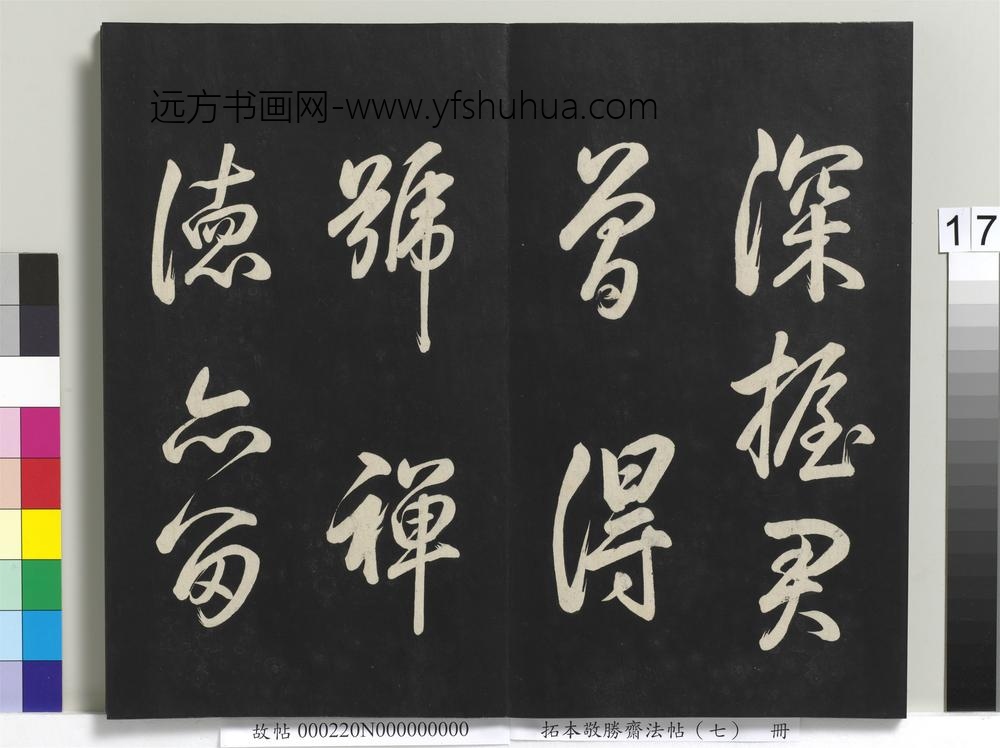 远方书画网-www.yfshuhua.com
深握
曾得
號禅
德亦
17
故帖 000220N000000000
拓本敬勝齋法帖（七） 冊